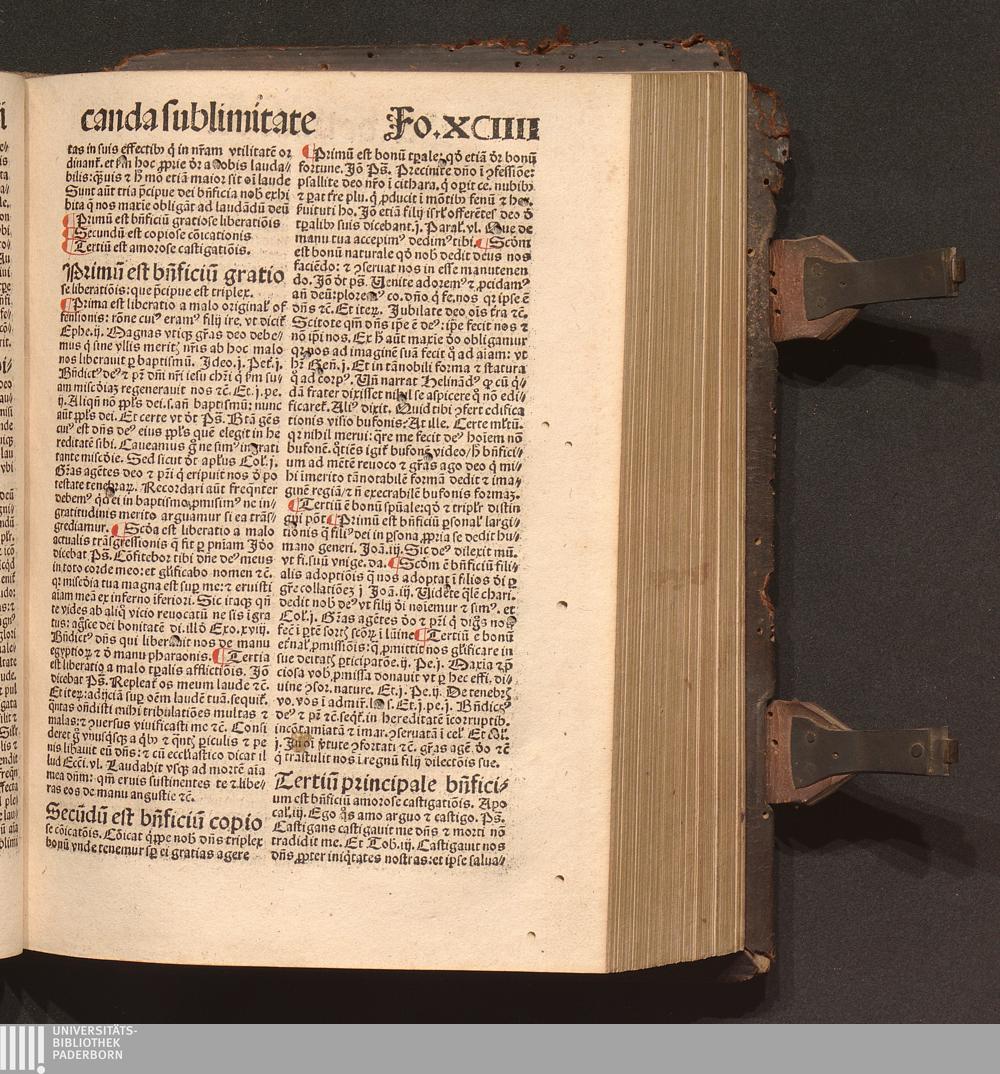 canda sublimitate Fo.XCIIII
tas in suis effectibꝰ q̇ in nr̃am vtilitatẽ or
dinant̃. et hoc ꝓprie dr̃ a nobis lauda⸗
bilis: q̃uis
Sunt aũt tria p̃cipue dei bñficia nob̃ exhi
bita q̃ nos maxie obligãt ad laudãdũ deũ
¶ Primũ est bñficiũ gratiose liberatiõis
¶ Secundũ est copiose cõicationis
¶ Tertiũ est amorose castigatiõis.
Primũ est bñficiũ gratio
se liberatiõis: que p̃cipue est triplex.
¶ Prima est liberatio a malo original̃ of
fensionis: rõne cuiꝰ eramꝰ filij ire, vt dicit̃
Ephe.ij. Magnas vtiqꝫ gr̃as deo debe⸗
mus q̃ sine vllis merit̃ nr̃is ab hoc malo
nos liberauit ꝑ baptismũ. Ideo.j. Pet̃.j.
Bñdictꝰ deꝰ ⁊ pr̃ dñi nr̃i iesu chr̃i q̃ ẜm su⸗
am miscd̃iaꝫ regenerauit nos ⁊c̃. Et.j.pe.
ij. Aliqñ nõ ppl̃s dei.s.añ baptismũ: nunc
aũt ppl̃s dei. Et certe vt dt̃ Ps̃. Btã gẽs
cuiꝰ est dñs deꝰ eius ppl̃s quẽ elegit in he
reditatẽ sibi. Caueamus g̃ ne simꝰ ingrati
tante miscd̃ie. Sed sicut dt̃ apl̃us Col̃.j.
Gr̃as agẽtes deo ⁊ pr̃i q̃ eripuit nos d̃ po
testate tenebraꝝ. Recordari aũt freq̃nter
debemꝰ q̃d ei in baptismo ꝓmisimꝰ ne in⸗
gratitudinis merito arguamur si ea trãs⸗
grediamur. ¶ Scd̃a est liberatio a malo
actualis trãsgressionis q̃ fit ꝑ pñiam Iõo
dicebat Ps̃. Cõfitebor tibi dñe deꝰ meus
in toto corde meo: et gl̃ificabo nomen ⁊c̃.
qꝛ miscd̃ia tua magna est suꝑ me: ⁊ eruisti
aiam meã ex inferno iferiori. Sic itaqꝫ qñ
te vides ab aliq̃ vicio reuocatũ ne sis igra
tus: ag̃sce dei bonitatẽ d.illd̃ Exo.xviij.
Bñdictꝰ dñs qui liberauit nos de manu
egyptioꝝ ⁊ d̃ manu pharaonis. ¶ Tertia
est liberatio a malo tꝑalis afflictiõis. Iõo
dicebat Ps̃. Repleat̃ os meum laude ⁊c̃.
Et iteꝝ: adijciã suꝑ oẽm laudẽ tuã. sequit̃.
q̃ntas oñdisti mihi tribulatiões multas ⁊
malas: ⁊ ꝯuersus viuificasti me ⁊c̃. Consi
deret g̃ vnusq̃sqꝫ a q̃bꝰ ⁊ q̃nt̃ ꝑiculis ⁊ pe
nis libauit eũ dñs: ⁊ cũ eccl̃iastico dicat il
lud Ecci.vl. Laudabit vsqꝫ ad mortẽ aĩa
mea dñm: qm̃ eruis sustinentes te ⁊ libe⸗
ras eos de manu angustie ⁊c̃.
Secũdũ est bñficiũ copio
se cõicatõis. Cõicat q̃ppe nob̃ dñs triplex
bonũ vnde tenemur sꝑ ei gratias agere
¶ Primũ est bonũ tꝑale: qd̃ etiã dr̃ bonũ
fortune. Iõo Ps̃. Precinite dño i ꝯfessiõe:
psallite deo nr̃o i cithara. q̃ oꝑit ce. nubibꝰ
⁊ ꝑat t̃re plu. q̃ ꝓducit i mõtibꝰ fenũ ⁊ her.
ẜuituti ho. Iõo etiã filij isrl̃ offerẽtes deo d̃
tꝑalibꝰ suis dicebant.j. Paral̃.vl. Que de
manu tua accepimꝰ dedimꝰ tibi. ¶ Scd̃m
est bonũ naturale qd̃ nob̃ dedit deus nos
faciẽdo: ⁊ ꝯseruat nos in esse manutenen
do. Iõo dt̃ ps̃. Venite adoremꝰ ⁊ ꝓcidamꝰ
añ deũ: ploremꝰ co. dño q̃ fe. nos qꝛ ipse ẽ
dñs ⁊c̃. Et iteꝝ. Iubilate deo oĩs t̃ra ⁊c̃.
Scitote qm̃ dñs ipe ẽ deꝰ: ipe fecit nos ⁊
nõ ipi nos. Ex h̃ aũt maxie dõ obligamur
qꝛ nos ad imaginẽ suã fecit q̃ ad aĩam: vt
hr̃ Geñ.j. Et in tã nobili forma ⁊ statura
q̃ ad corpꝰ. Vñ narrat Helinãdꝰ ꝙ cũ q̃⸗
dã frater dixisset nihil se aspicere q̃ nõ edi⸗
ficaret̃. Aliꝰ dixit. Quid tibi ꝯfert edifica
tionis visio bufonis: At ille. Certe ml̃tũ.
qꝛ nihil merui: q̃re me fecit deꝰ hoĩem nõ
bufonẽ. q̃tiẽs igit̃ bufonẽ video/h̃ bñfici⸗
um ad mẽtẽ reuoco ⁊ gr̃as ago deo q̃ mi⸗
hi imerito tã notabilẽ formã dedit ⁊ ima⸗
ginẽ regiã/⁊ ñ execrabilẽ bufonis formaꝫ.
¶ Tertiũ ẽ bonũ spũale: qd̃ ⁊ tripl̃r distin
gui põt ¶ Primũ est bñficiũ ꝑsonal̃ largi⸗
tionis q̃ filiꝰ dei in ꝑsona ꝓpria se dedit hu⸗
mano generi. Ioã.iij. Sic deꝰ dilexit mũ.
vt fi. suũ vnige. da. ¶ Scd̃m ẽ bñficiũ fili⸗
alis adoptiõis q̃ nos adoptat̃ i filios dei ꝑ
gr̃e collationeꝫ j Ioã.iij. Videte q̃lẽ chari.
dedit nob̃ deꝰ vt filij dei noĩemur ⁊ simꝰ. et
Col̃.j. Gr̃as agẽtes dõ ⁊ pr̃i q̃ dig̃s nos
fec̃ i ꝑtẽ sort̃ scõꝝ i lũine ¶ Tertiũ ẽ bonũ
et̃nal̃ ꝓmissiõis: q̃ ꝓmittit nos gl̃ificare in
sue deitat̃ ꝑticipatõe.ij. Pe.j. Maxia ⁊ p̃
ciosa vob̃ ꝓmissa donauit vt ꝑ hec effi. di⸗
uine ꝯsor. nature. Et.j. Pe.ij. De tenebr̃
vo. vos i admir̃. Et.j.pe.j. Bñdictꝰ
deꝰ ⁊ pr̃ ⁊c̃. seqt̃. in hereditatẽ icorruptib.
incõtamiatã ⁊ imar. ꝯseruatã i cel̃ Et
j. ꝟtute ꝯfortati ⁊c̃. gr̃as ageñ. dõ ⁊c̃
q̃ trãstulit nos i regnũ filij dilectõis sue.
Tertiũ principale bñfici⸗
um est bñficiũ amorose castigatiõis. Apo
cal̃.iij. Ego q̃s amo arguo ⁊ castigo. Ps̃.
Castigans castigauit me dñs ⁊ morti nõ
tradidit me. Et Tob.iij. Castigauit nos
dñs ꝓpter iniq̃tates nostras: et ipse salua⸗
UNIVERSITÄTS-
BIBLIOTHEK
PADERBORN